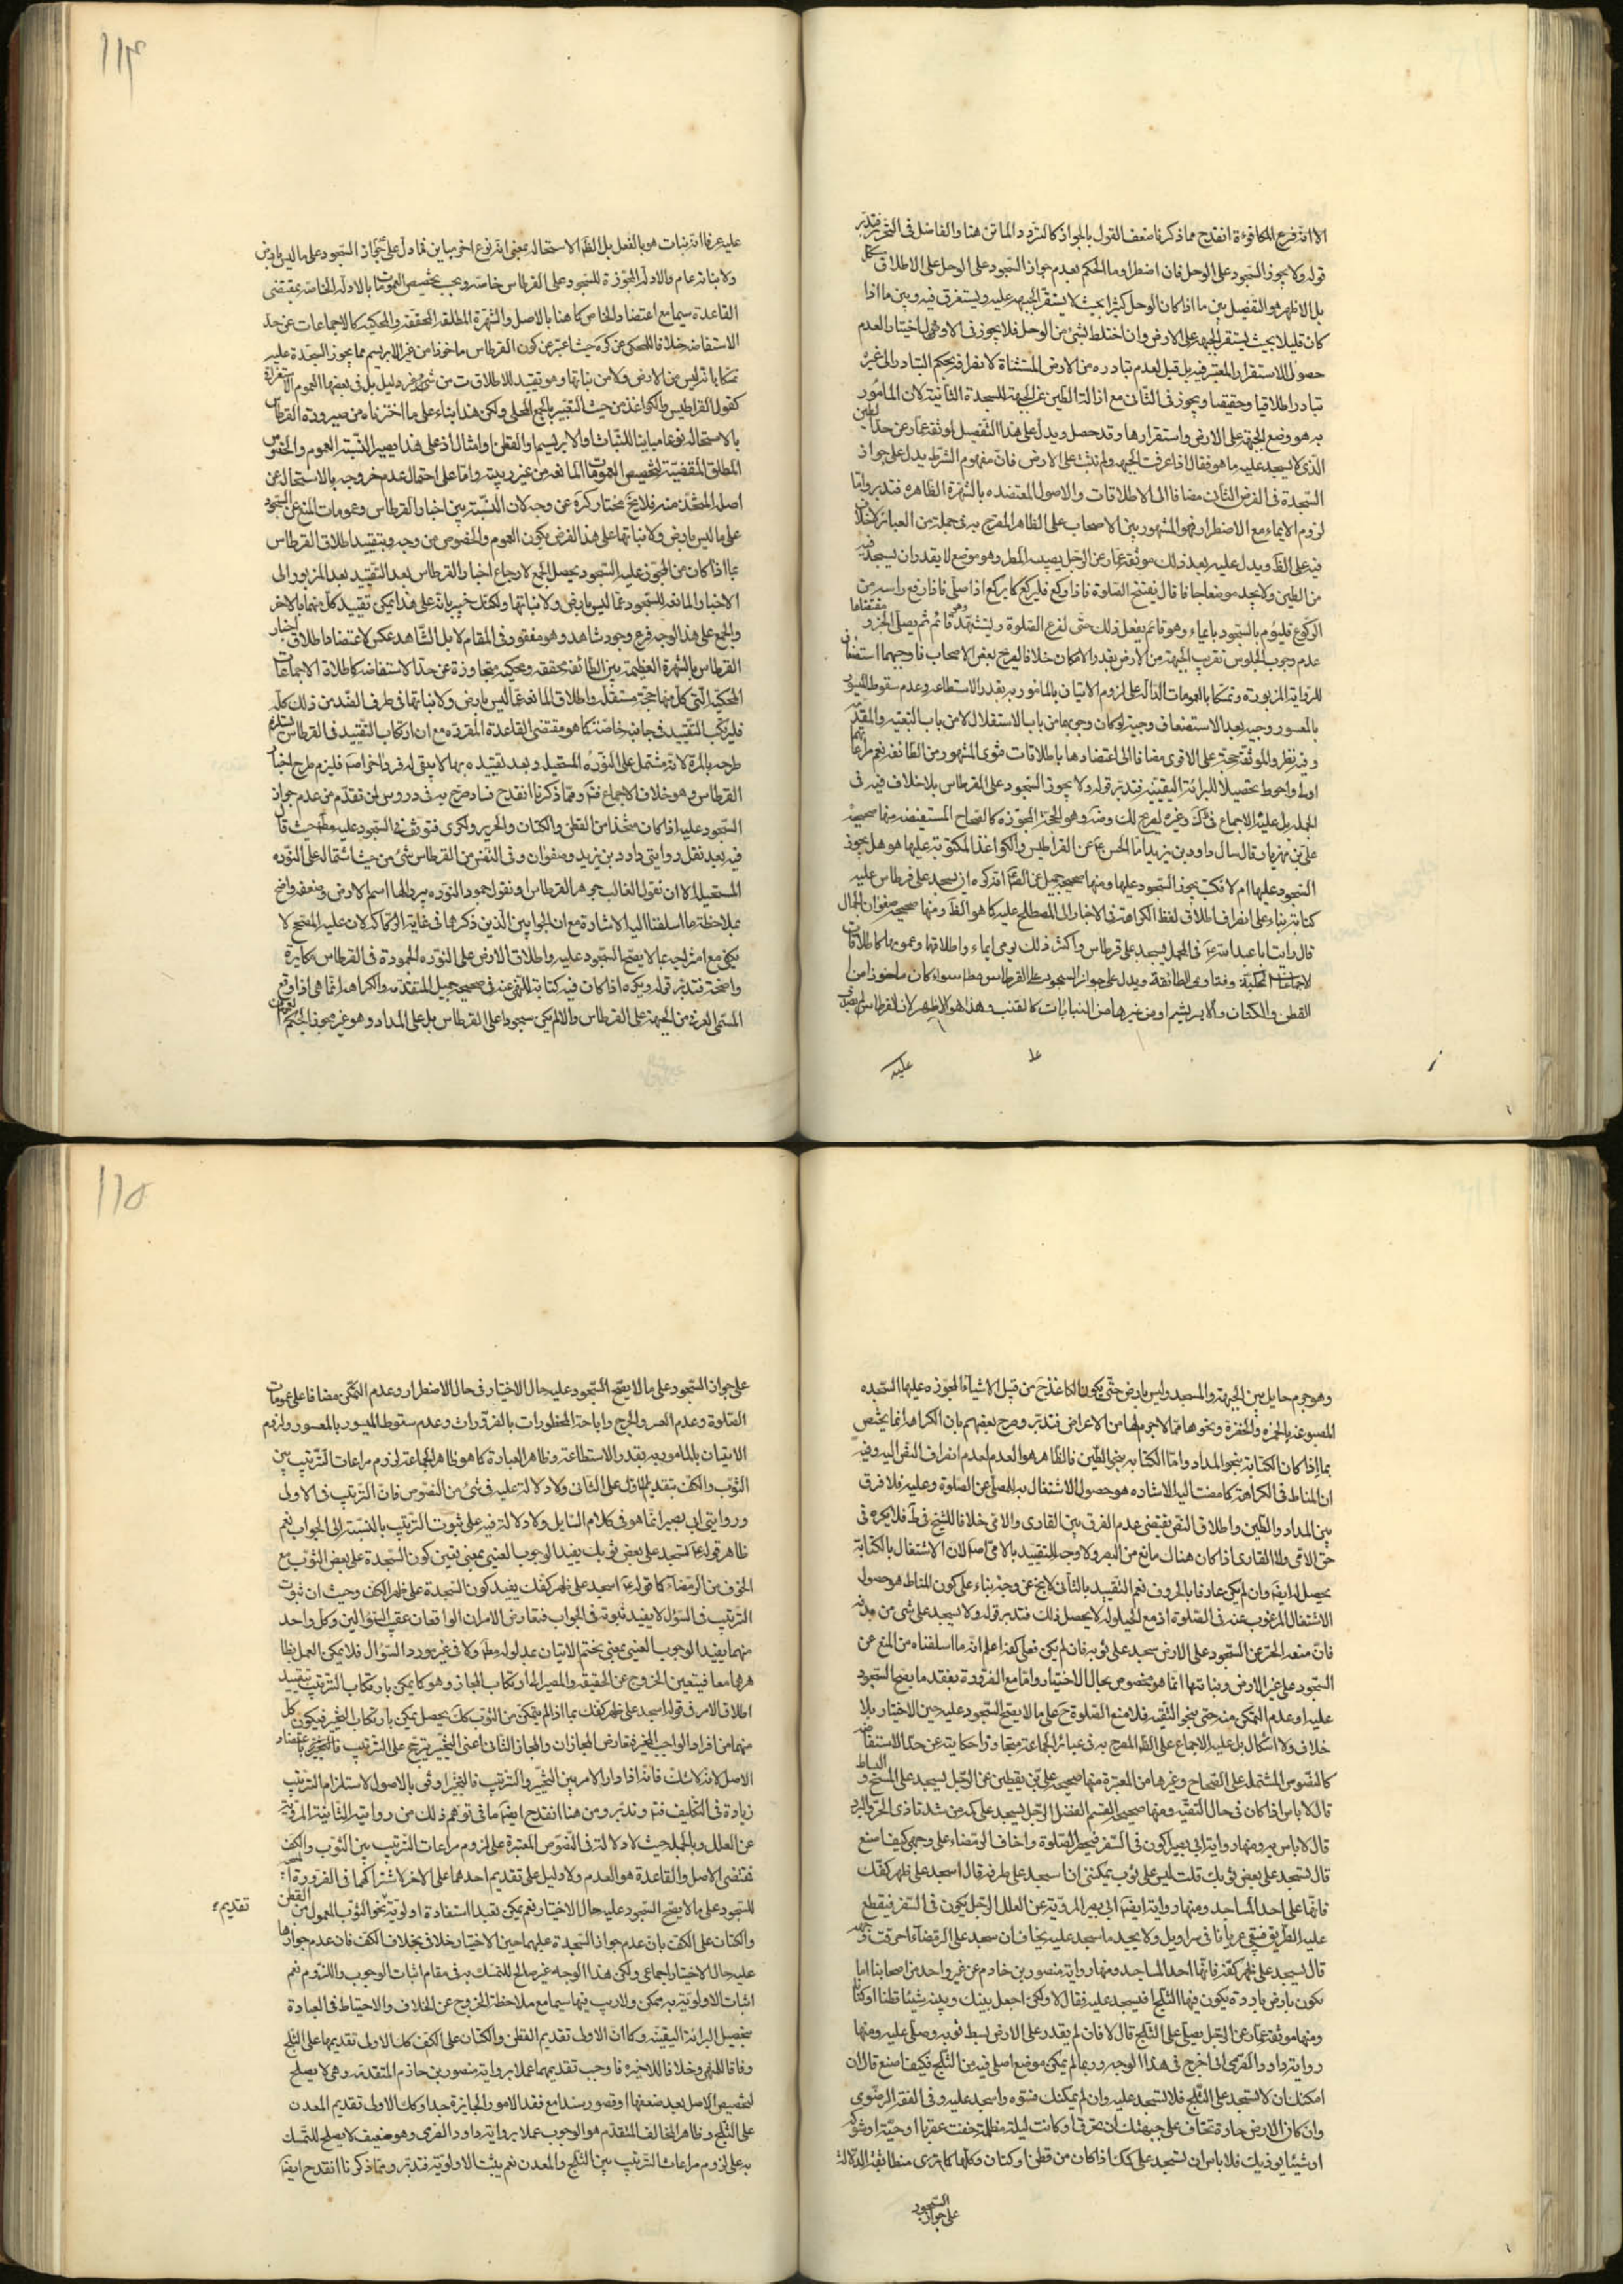 الا انه فرع المكافوءة انقدح مما ذكرنا ضعف القول بالجواز كالتردد للماتن هنا والفاضل في التحرير فتدبر
قوله ولا يجوز السجود على الوحل فان اضطر اوما الحكم بعدم جواز السجود على الوحل على الاطلاق مشكل
بل الاظهر هو التفصيل بين ما اذا كان الوحل كثيرا بحيث لا يستقر الجبهه عليه ويستغرق فيه وبين ما اذا
كان قليلا بحيث يستقر الجبهه على الارض وان اختلط بشئ من الوحل فلا يجوز في الاول في اختيار العدم
حصول الاستقرار المعتبر فيه بل قيل لعدم تبادره من الارض المستثناة لانصرافه بحكم التبادر الى غيره
تبادرا اطلاقيا وحقيقيا ويجوز في الثاني مع ازالة الطين عن الجبهة للسجدة الثانية لان المامور
به هو وضع الجبهة على الارض واستقرارها وقد حصل ويدل على هذا التفصيل موثقة عمار عن حد الطين
الذي لا يسجد عليه ما هو فقال اذا غرقت الجبهه ولم تثبت على الارض فان مفهوم الشرط يدل على جواز
السجدة في الفرض الثاني مضافا الى الاطلاقات والاصول المعتضده بالشهرة الظاهره فتدبر واما
لزوم الايماء مع الاضطرار فهو المشهور بين الاصحاب على الظاهر المصرح به في جملة من العبائر بلا خلاف
فيه على الظ ويدل عليه بعد ذلك موثقة عمار عن الرجل يصيبه المطر وهو موضع لا يقدر ان يسجد فيه
من الطين ولا يجد موضعا جافا قال يفتتح الصلوة فاذا ركع فليركع كما يركع اذا صلى فاذا رفع راسه من
الركوع فليؤم بالسجود بايماء وهو قائم يفعل ذلك حتى يفرغ الصلوة ويتشهد وهو قائم ثم يصلي
عدم وجوب الجلوس تقريب الجبهة من الارض بقدر الامكان خلافا لصريح بعض الاصحاب فاوجبهما استضعافا
للرواية المزبورة وتمسكا بالعمومات الدالة على لزوم الاتيان بالمامور به بقدر الاستطاعه وعدم سقوط الميسور
بالمعسور وجيه بعد الاستضعاف وجيه لو كان وجوبهما من باب الاستقلال لا من باب التبعيه والمقدمه
وفيه نظر والموثقة حجة على الاقوى مضافا الى اعتضادها باطلاقات فتوى المشهور من الطائفه نعم مراعاتهما
اولى واحوط تحصيلا للبرائة اليقينيه فتدبر قوله ولا يجوز السجود على القرطاس بلا خلاف فيه في
الجمله بل عليه الاجماع في وغيره وهو الحجة المجوزه كالصحاح المستفيضه منها صحيحه
علي بن مهزيار قال سال داود بن يزيد ابا الحسن ع عن القراطيس والكواغذ المكتوبة عليها هو هل يجوز
السجود عليها ام لا فكتب يجوز السجود عليها ومنها صحيحة جميل عن الص انه كره ان يسجد على قرطاس عليه
كتابة بناء على انصراف اطلاق لفظ الكراهة في الاخبار الى المصطلح عليه كما هو الظ ومنها صحيحه صفوان الجمال
قال رايت ابا عبد الله ع في المحمل يسجد على قرطاس واكثر ذلك يومى ايماء واطلاقها وعمومها كاطلاقات
الاجماعات المحكية وفتاوى الطائفة ويدل على جواز السجود على القرطاس مط سواء كان ماخوذا من
القطن والكتان والابريشم او من غيرها من النباتات كالقنب وهذا هو الاظهر لان القرطاس
عليه
١١٤
عليه عرفا انه نبات هو بالفعل بل الظ الاستحاله بمعنى انه نوع اخر مباين فما دل على جواز السجود على ما ليس بارض
ولا نباته عام والادلة المجوزة للسجود على القرطاس خاصه ويجب تخصيص العمومات بالادله الخاصه بمقتضى
القاعدة سيما مع اعتضاد الخاص كما هنا بالاصل والشهرة المطلقه المحققه والمحكيه كالاجماعات عن حد
الاستفاضه خلافا للمحكي عن كره حيث اعتبر عن كون القرطاس ماخوذا من غير الابريسم مما يجوز السجدة عليه
تمسكا بانه ليس من الارض ولا من نباتها وهو تقييد للاطلاق من غير دليل بل في بعضها العموم
كقوله القراطيس والكواغذ من حيث التعبير بالجمع المحلى ولكن هذا بناء على ما اخترناه من صيرورة القرطاس
بالاستحاله نوعا مباينا للنبات او الابريسم والقطن وامثال ذا على هذا يصير النسبة العموم والخصوص
المطلق المقتضية لتخصيص العمومات المانعه من غير ريبه واما على احتمال عدم خروجه بالاستحاله عن
اصل المتخذ منه فلا يخ مختار كره عن وجه لان النسبة بين اخبار القرطاس وعمومات المنع عن السجود
على ما ليس بارض ولا نباتها على هذا الفرض يكون العموم والخصوص من وجه وبتقييد اطلاق القرطاس
بما اذا كان من المجوز عليه السجود يحصل الجمع لارجاع اخبار القرطاس بعد التقييد بعد المزبور الى
الاخبار المانعه للسجود عما ليس بارض ولا نباتها ولكنك خبير بانه على هذا يمكن تقييد كل منهما بالاخر
والجمع على هذا الوجه فرع وجود شاهد وهو مفقود في المقام لا بل الشاهد عكس لاعتضاد اطلاق اخبار
القرطاس بالشهرة العظيمة بين الطائفه محققه ومحكية متجاوزة عن حد الاستفاضه كاطلاق الاجماعات
المحكيه التي كل منها حجة مستقله واطلاق المانعه عما ليس بارض ولا نباتها في طرف الضد من ذلك كله
فليرتكب التقييد في جانبه خاصة كما هو مقتضى القاعدة المقرره مع ان ارتكاب التقييد في القرطاس يستلزم
طرحه بالمرة لانه مشتمل على النوره المستحيل وبعد تقييده بها لا يبقى له فرد اخر اصلا فيلزم طرح اخبار
القرطاس وهو خلاف الاجماع فتدبر ومما ذكرنا انقدح فساد صرح به في دروس لمن تقدم من عدم جواز
السجود عليه اذا كان متخذا من القطن والكتان والحرير وفي فتوقف في السجود عليه مط حيث قال
فيه بعد نقل روايتى داود بن يزيد وصفوان وفي النفس من القرطاس شئ من حيث اشتماله على النوره
المستحيله الا ان نقول الغالب جوهر القرطاس او نقول جمود النوره يرد اليها اسم الارض وضعفه واضح
بملاحظة ما اسلفنا اليه الاشارة مع ان الجوابين الذين ذكرهما في غاية الركاكه لان عليه المصحح لا
يكفي مع امتزاجه بما لا يصح السجود عليه واطلاق الارض على النوره المجموده في القرطاس مكابرة
واضحة فتدبر قوله ويكره اذا كان فيه كتابة للنهي عنه في صحيحه جميل المتقدمه والكراهه انما هي اذا وقع
المسمى المجزي من الجبهه على القرطاس والا لم يكن سجودا على القرطاس بل على المداد وهو غير مجوز الحكم
١١٥
وهو جرم حايل بين الجبهة والمسجد وليس بارض حتى يكون الكاغذ ح من قبيل الاشياء المجوزه عليها السجده
المصبوغه بالحمره والخضرة ونحوهما مما لا جرم لها من الاعراض فتدبر وصرح بعضهم بان الكراهه انما يختص
بما اذا كان الكتابة بنحو المداد واما الكتابه بنحو الطين فالظاهر هو العدم لعدم انصراف النص اليه وفيه
ان المناط في الكراهة كما مضت اليه الاشاره هو حصول الاشتغال به للمصلي عن الصلوة وعليه فلا فرق
بين المداد والطين واطلاق النص يقتضى عدم الفرق بين القارى والامى خلافا للشيخ في ط فلا يكره في
حق الامى ولا القارى اذا كان هناك مانع من البصر ولا وجه للتقييد بالامى اصلا لان الاشتغال بالكتابة
يحصل له ايضا وان لم يكن عارفا بالحروف نعم التقييد بالثاني لا يخ عن وجه بناء على كون المناط هو حصول
الاشتغال المرغوب عنه في الصلوة اذ مع الحيلوله لا يحصل ذلك فتدبر قوله ولا يسجد على شئ من بدنه
فان منعه الحر عن السجود على الارض سجد على ثوبه فان لم يكن فعلى كفه اعلم انه ما اسلفناه من المنع عن
السجود على غير الارض ونباتها انما هو مخصوص بحال الاختيار واما مع الضرورة بفقد ما يصح السجود
عليه او عدم التمكن منه حتى بنحو التقيه فلا منع الصلوة ح على ما لا يصح السجود عليه حين الاختيار بلا
خلاف ولا اشكال بل عليه الاجماع على الظ المصرح به في عبائر الجماعة متجاوزا حكايته عن حد الاستفاضه
كالنصوص المشتمله على الصحاح وغيرها من المعتبرة منها صحيحه علي بن يقطين عن الرجل يسجد على المسح والبساط
قال لا باس اذا كان في حال التقيه ومنها صحيحه القسم الفضيل الرجل يسجد على كمه من شدة اذى الحر والبرد
قال لا باس به ومنها رواية ابي بصير اكون في السفر فتحضر الصلوة واخاف الرمضاء على وجهي كيف اصنع
قال تسجد على بعض ثوبك قلت ليس على ثوب يمكنني ان اسجد على طرفه قال اسجد على ظهر كفك
فانها على احد المساجد ومنها رواية ايضا ابي بصير المروية عن العلل الرجل يكون في السفر فيقطع
عليه الطريق فيبقى عريانا في سراويل ولا يجد ما يسجد عليه يخاف ان سجد على الرمضاء احرقت وجهه
قال يسجد على ظهر كفه فانها احد المساجد ومنها رواية منصور بن خادم عن غير واحد من اصحابنا انا
نكون بارض باردة يكون فيها الثلج افنسجد عليه فقال لا ولكن اجعل بينك وبينه شيئا قطنا او كتانا
ومنها موثقة عمار عن الرجل يصلي على الثلج قال لا فان لم يقدر على الارض بسط ثوبه وصلى عليه ومنها
رواية داود الصرمى اني اخرج في هذا الوجه وربما لم يمكن موضع اصلي فيه من الثلج فكيف اصنع قال ان
امكنك ان لا تسجد على الثلج فلا تسجد عليه وان لم يمكنك فسوه واسجد عليه وفي الفقه الرضوى
وان كان الارض حارة تخاف على جبهتك ان تحرق او كانت ليلة مظلمة خفت عقربا او حية او شوكة
او شيئا يوذيك فلا باس ان تسجد على كمك اذا كان من قطن او كتان وكلها كما ترى متطابقة الدلالة
على جواز السجود
على جواز السجود على ما لا يصح السجود عليه حال الاختيار في حال الاضطرار وعدم التمكن مضافا على عمومات
الصلوة وعدم العسر والحرج واباحة المحظورات بالضرورات وعدم سقوط الميسور بالمعسور ولزوم
الاتيان بالمامور به بقدر الاستطاعة وظاهر العبارة كما هو ظاهر الجماعة لزوم مراعات الترتيب بين
الثوب والكف بتقديم الاول على الثاني ولا دلالة عليه في شئ من النصوص فان الترتيب في الاولى
وروايتى ابى بصير انما هو في كلام السايل ولا دلالة فيه على ثبوت الترتيب بالنسبة الى الجواب نعم
ظاهر قوله ع تسجد على بعض ثوبك يفيد الوجوب العيني بمعنى تعين كون السجدة على بعض الثوب مع
الخوف من الرمضاء كما قوله ع اسجد على ظهر كفك يفيد كون السجدة على ظهر الكف وحيث ان ثبوت
الترتيب في السؤل لا يفيد ثبوته في الجواب فتعارض الامران الواقعان عقيب السؤالين وكل واحد
منهما يفيد الوجوب العيني بمعنى تحتم الاتيان بمدلوله مط ولا في غير مورد السؤال فلا يمكن العمل بظا
هرهما معا فيتعين الخروج عن الحقيقه والمصير الى ارتكاب المجاز وهو كما يمكن بارتكاب الترتيب بتقييد
اطلاق الامر في قوله اسجد على ظهر كفك بما اذا لم يتمكن من الثوب كك يحصل يمكن بارتكاب التخيير فيكون كل
منهما من افراد الواجب المخيرة تعارض المجازان والمجاز الثاني اعنى التخيير يترجح على الترتيب باعتضاد
الاصل لانه لا شك فانه اذا دار الامر بين التخيير والترتيب فالتخير اوفق بالاصول لاستلزام الترتيب
زيادة في التكليف فته وتدبر ومن هنا انقدح ايضا ما في توهم ذلك من روايته الثانية المروية
عن العلل وبالجمله حيث لا دلالة في النصوص المعتبرة على لزوم مراعات الترتيب بين الثوب والكف
فمقتضى الاصل والقاعدة هو العدم ولا دليل على تقديم احدهما على الاخر لاشتراكهما في الضرورة
للسجود على ما لا يصح السجود عليه حال الاختيار نعم يمكن تقييد استفادة اولوية نحو الثوب المعمول من القطن
تقديم
والكتان على الكف بان عدم جواز السجدة عليهما حين الاختيار خلافى بخلاف الكف فان عدم جوازها
عليه حال الاختيار اجماعى ولكن هذا الوجه غير صالح للتمسك به في مقام اثبات الوجوب واللزوم نعم
اثبات الاولوية به ممكن ولا ريب فيها سيما مع ملاحظة الخروج عن الخلاف والاحتياط في العبادة
بتحصيل البرائة اليقينيه وكما ان الاولى تقديم القطن والكتان على الكف كك الاولى تقديمها على الثلج
وفاقا للمنهى وخلافا للاخيره فاوجب تقديمهما عملا برواية منصور بن حازم المتقدمه وهى لا يصلح
لتخصيص الاصل بعد ضعفها وقصور سندها مع فقد الامور الجابرة جدا وكك الاولى تقديم المعدن
على الثلج وظاهر المخالف المتقدم هو الوجوب عملا برواية داود الصرمى وهو ضعيف لا يصلح للتمسك
به على لزوم مراعات الترتيب بين الثلج والمعدن نعم يثبت الاولوية فتدبر ومما ذكرنا انقدح ايضا